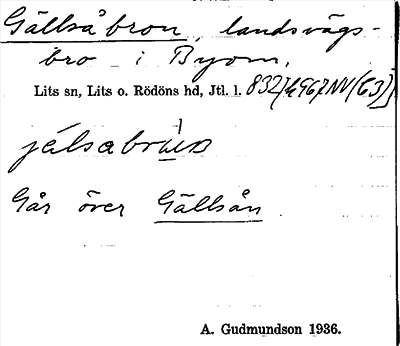 Gällsåbron, landsvägs-
bro i Byom,
Lits sn, Lits o. Rödöns hd, Jtl. l. 832
Går över Gällsån
A. Gudmundson 1936.